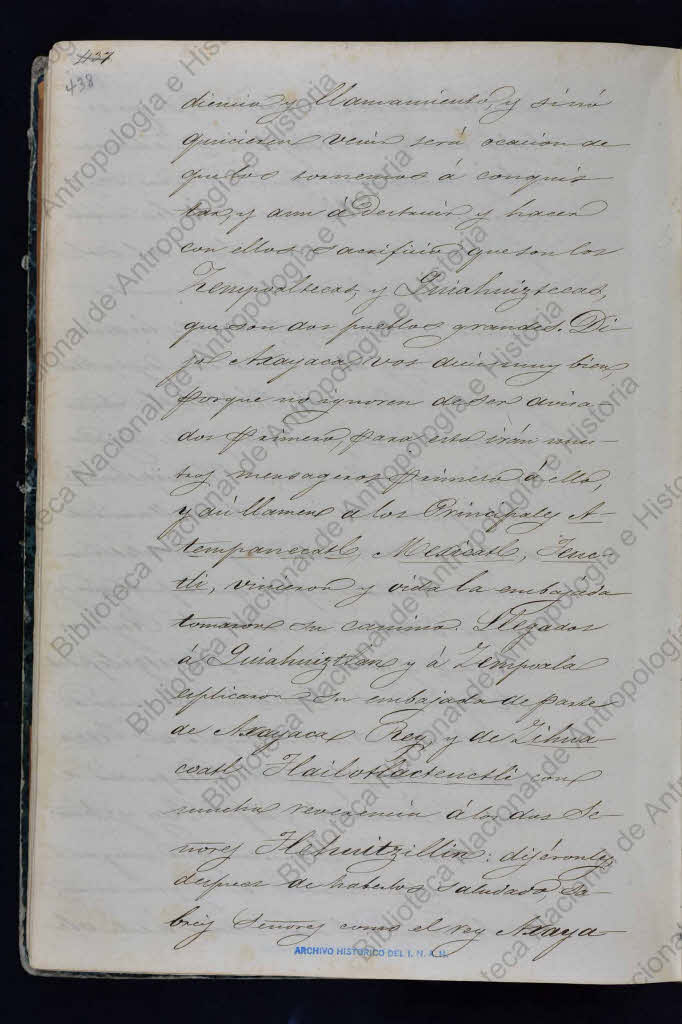 437
438
diencia y llamamiento, y sinó
quicieren venir será ocacion de
que los tornemos á conquis
tar, y aun á Destruir y hacer
con ellos sacrificio que son los
Zempoaltecas, y Quiahuiztecas,
que son dos pueblos grandes. Di-
jo Axayaca vos decis muy bien,
porque no ignoren de ser avisa-
dos primero, para esto irán nues-
tros mensageros primero á ello,
y así llamen a los Principales A-
tempanecatl, Mexicatl, Teuc-
tli, vinieron y oida la embajada
tomaron su camino. Llegados
á Quiahuiztlan y á Zempoala
esplicaron su embajada de parte
de Axayaca Rey, y de Zihua
coatl Tlailotlacteuctli con
mucha reverencia á los dos Se-
ñores Tlehuitzillin: dijéronles
despues de haberlos saludado, Sa-
breis Señores como el rey Axaya-
ARCHIVO HISTORICO DEL I. N. A. H.
Biblioteca Nacional de Antropología e Historia